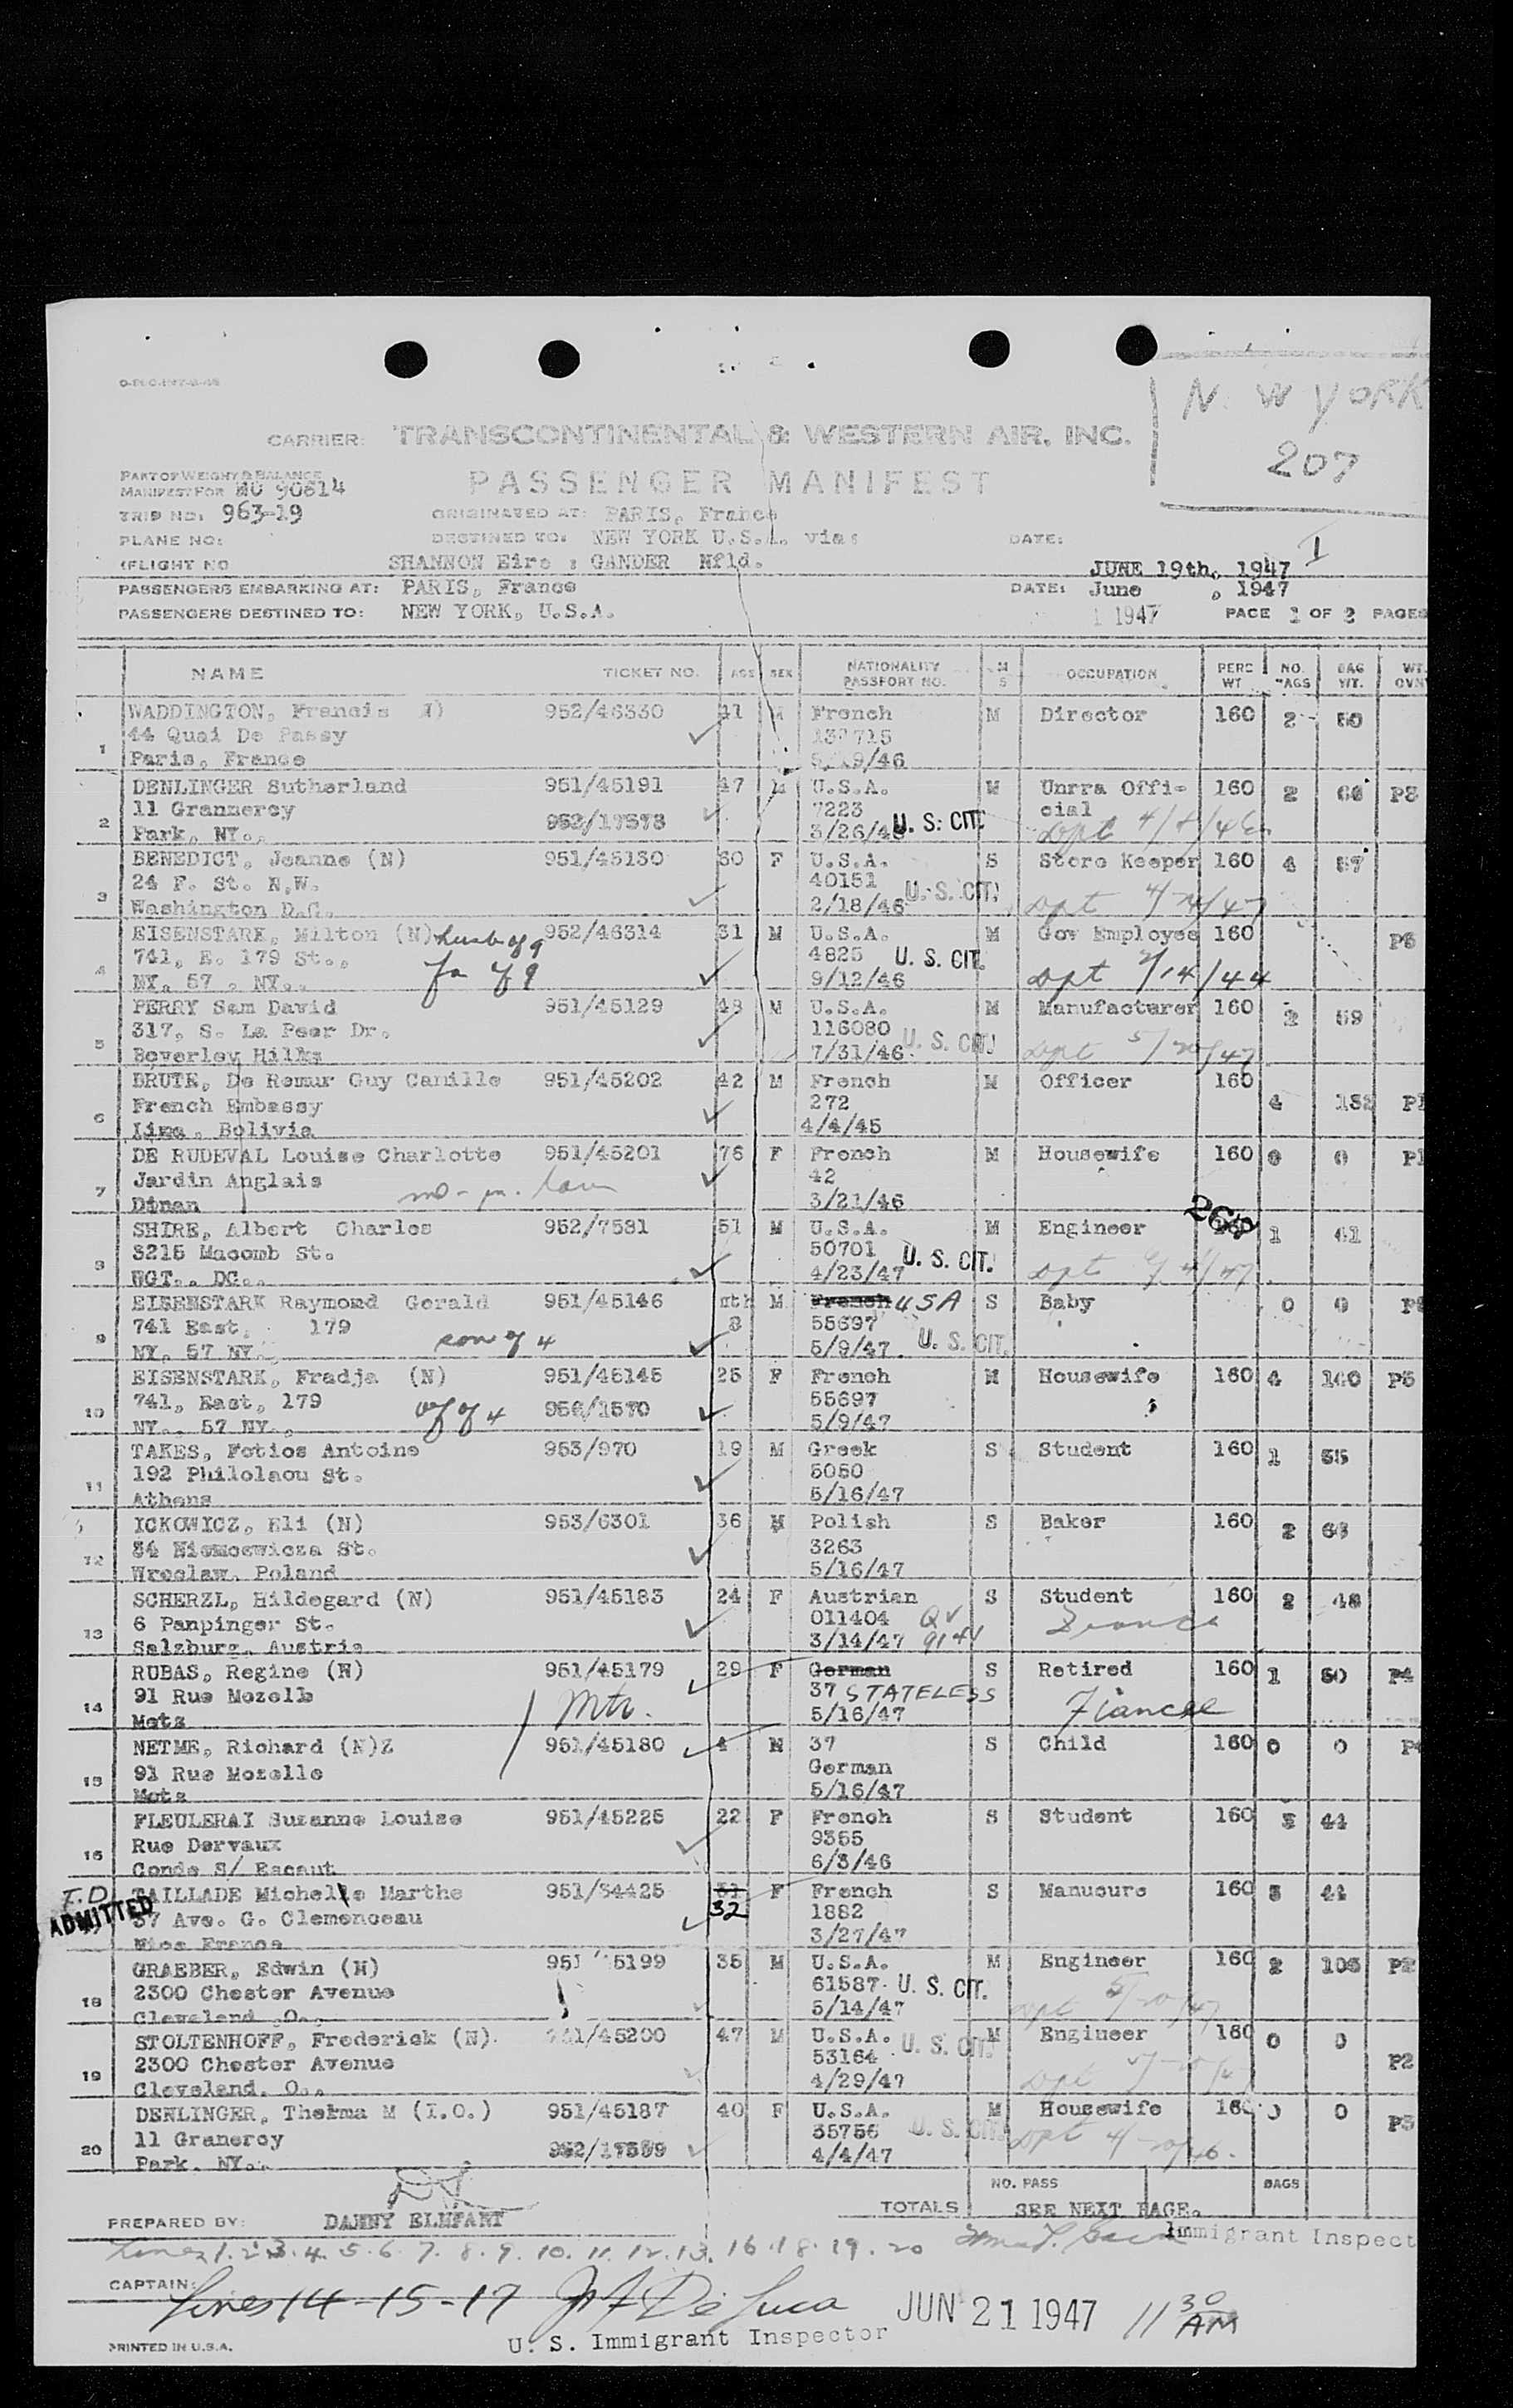 N. W YORK
207
CARRIER: TRANSCONTINENTAL & WESTERN AIR, INC.
PASSENGER MANIFEST
PART OF WEIGHT & BALANCE
MANIFEST FOR MU 90814
TRIP NO: 963-19
ORIGINATED AT: PARIS, France
PLANE NO:
DESTINED TO: NEW YORK U.S.A. via:
DATE:
FLIGHT NO
SHANNON Eire : GANDER Nfld.
JUNE 19th, 1947
I
PASSENGERS EMBARKING AT: PARIS, France
DATE: June , 1947
PASSENGERS DESTINED TO: NEW YORK, U.S.A.
1 1947
PAGE 1 OF 2 PAGES
NAME TICKET NO. AGE SEX NATIONALITY PASSPORT NO. M S OCCUPATION PERC WT NO. BAGS BAG WT.
1 WADDINGTON, Francis 952/46330 41 M French M Director 160 2 50
44 Quai De Passy
Paris, France
2 DENLINGER Sutherland 951/45191 47 M U.S.A. M Unrra Offi- 160 2 P3
11 Granmercy 7223 cial
Park, NY., 952/17573 3/26/46 U. S. CIT.
3 BENEDICT, Jeanne (N) 951/45130 30 F U.S.A. S Store Keeper 160 4
24 F. St. N.W. 40151 U. S. CIT.
Washington D.C. 2/18/46 Dpt
4 EISENSTARK, Milton (N) husb of 9 952/46314 31 M U.S.A. M Gov Employee 160 P5
741, E. 179 St., 4825 U. S. CIT.
NY. 57 . NY.. fa of 9 9/12/46 Dpt
5 PERRY Sam David 951/45129 48 M U.S.A. M Manufacturer 160 2 59
317, S. La Peer Dr. 116080 U. S. CIT.
Beverley Hills 7/31/46 Dpt 5/20/47
6 BRUTE, De Remur Guy Camille 951/45202 42 M French M Officer 160 4
French Embassy 272
Lima, Bolivia 4/4/45
7 DE RUDEVAL Louise Charlotte 951/45201 76 F French M Housewife 160 0 0
Jardin Anglais 42
Dinan 3/21/46
8 SHIRE, Albert Charles 952/7581 51 M U.S.A. M Engineer 1 41
3215 Macomb St. 50701 U. S. CIT.
WGT.. DC.. 4/23/47 Dpt
9 EISENSTARK Raymond Gerald 951/45146 mth M French USA S Baby 0 0
741 East, 179 8 55697
NY. 57 NY son of 4 5/9/47 U. S. CIT.
10 EISENSTARK, Fradja (N) 951/45145 25 F French M Housewife 160 4 P5
741, East, 179 wf of 4 956/1570 55697
NY.. 57 NY., 5/9/47
11 TAKES, Fotios Antoine 953/970 19 M Greek S Student 160 1
192 Philolaou St. 5050
Athens 5/16/47
12 ICKOWICZ, Eli (N) 953/6301 36 M Polish S Baker 160 2
34 Niemcewicza St. 3263
Wroclaw, Poland 5/16/47
13 SCHERZL, Hildegard (N) 951/45183 24 F Austrian S Student 160 2 48
6 Panpinger St. 011404 QV
Salzburg, Austria 3/14/47
14 RUBAS, Regine (N) 951/45179 29 F German S Retired 160 1 50 P4
91 Rue Mozelle Mtr. 37 STATELESS Fiancee
Metz 5/16/47
15 NETME, Richard (N)Z 951/45180 4 M 37 S Child 160 0 0
91 Rue Mozelle German
Metz 5/16/47
16 FLEULERAI Suzanne Louise 951/45225 22 F French S Student 160 3 44
Rue Dervaux 9355
Conde S/ Escaut 6/3/46
I.D. ADMITTED TAILLADE Michelle Marthe 951/34425 31 F French S Manucure 160 3 44
37 Ave. G. Clemenceau 32 1882
Nice France 3/27/47
18 GRAEBER, Edwin (N) 951 5199 35 M U.S.A. M Engineer 160 2 105 P2
2300 Chester Avenue 61587 U. S. CIT.
Cleveland O.. 5/14/47 Dpt 5/20/47
19 STOLTENHOFF, Frederick (N) /45200 47 M U.S.A. U. S. CIT. M Engineer 180 0 0
2300 Chester Avenue 53164 P2
Cleveland, O.. 4/29/47 Dpt
20 DENLINGER, Thelma M (I.O.) 951/45187 40 F U.S.A. M Housewife 160 0 0
11 Granercy 35756 U. S. CIT. P3
Park. NY.. 4/4/47 Dpt
TOTALS NO. PASS BAGS
SEE NEXT PAGE.
PREPARED BY: DANNY ELMFART
Immigrant Inspect
Lines 1. 2. 3. 4. 5. 6. 7. 8. 9. 10. 11. 12. 13. 16. 18. 19. 20
CAPTAIN:
Lines 14 - 15 - 17 De Luca JUN 21 1947 11 30 AM
U. S. Immigrant Inspector
PRINTED IN U.S.A.